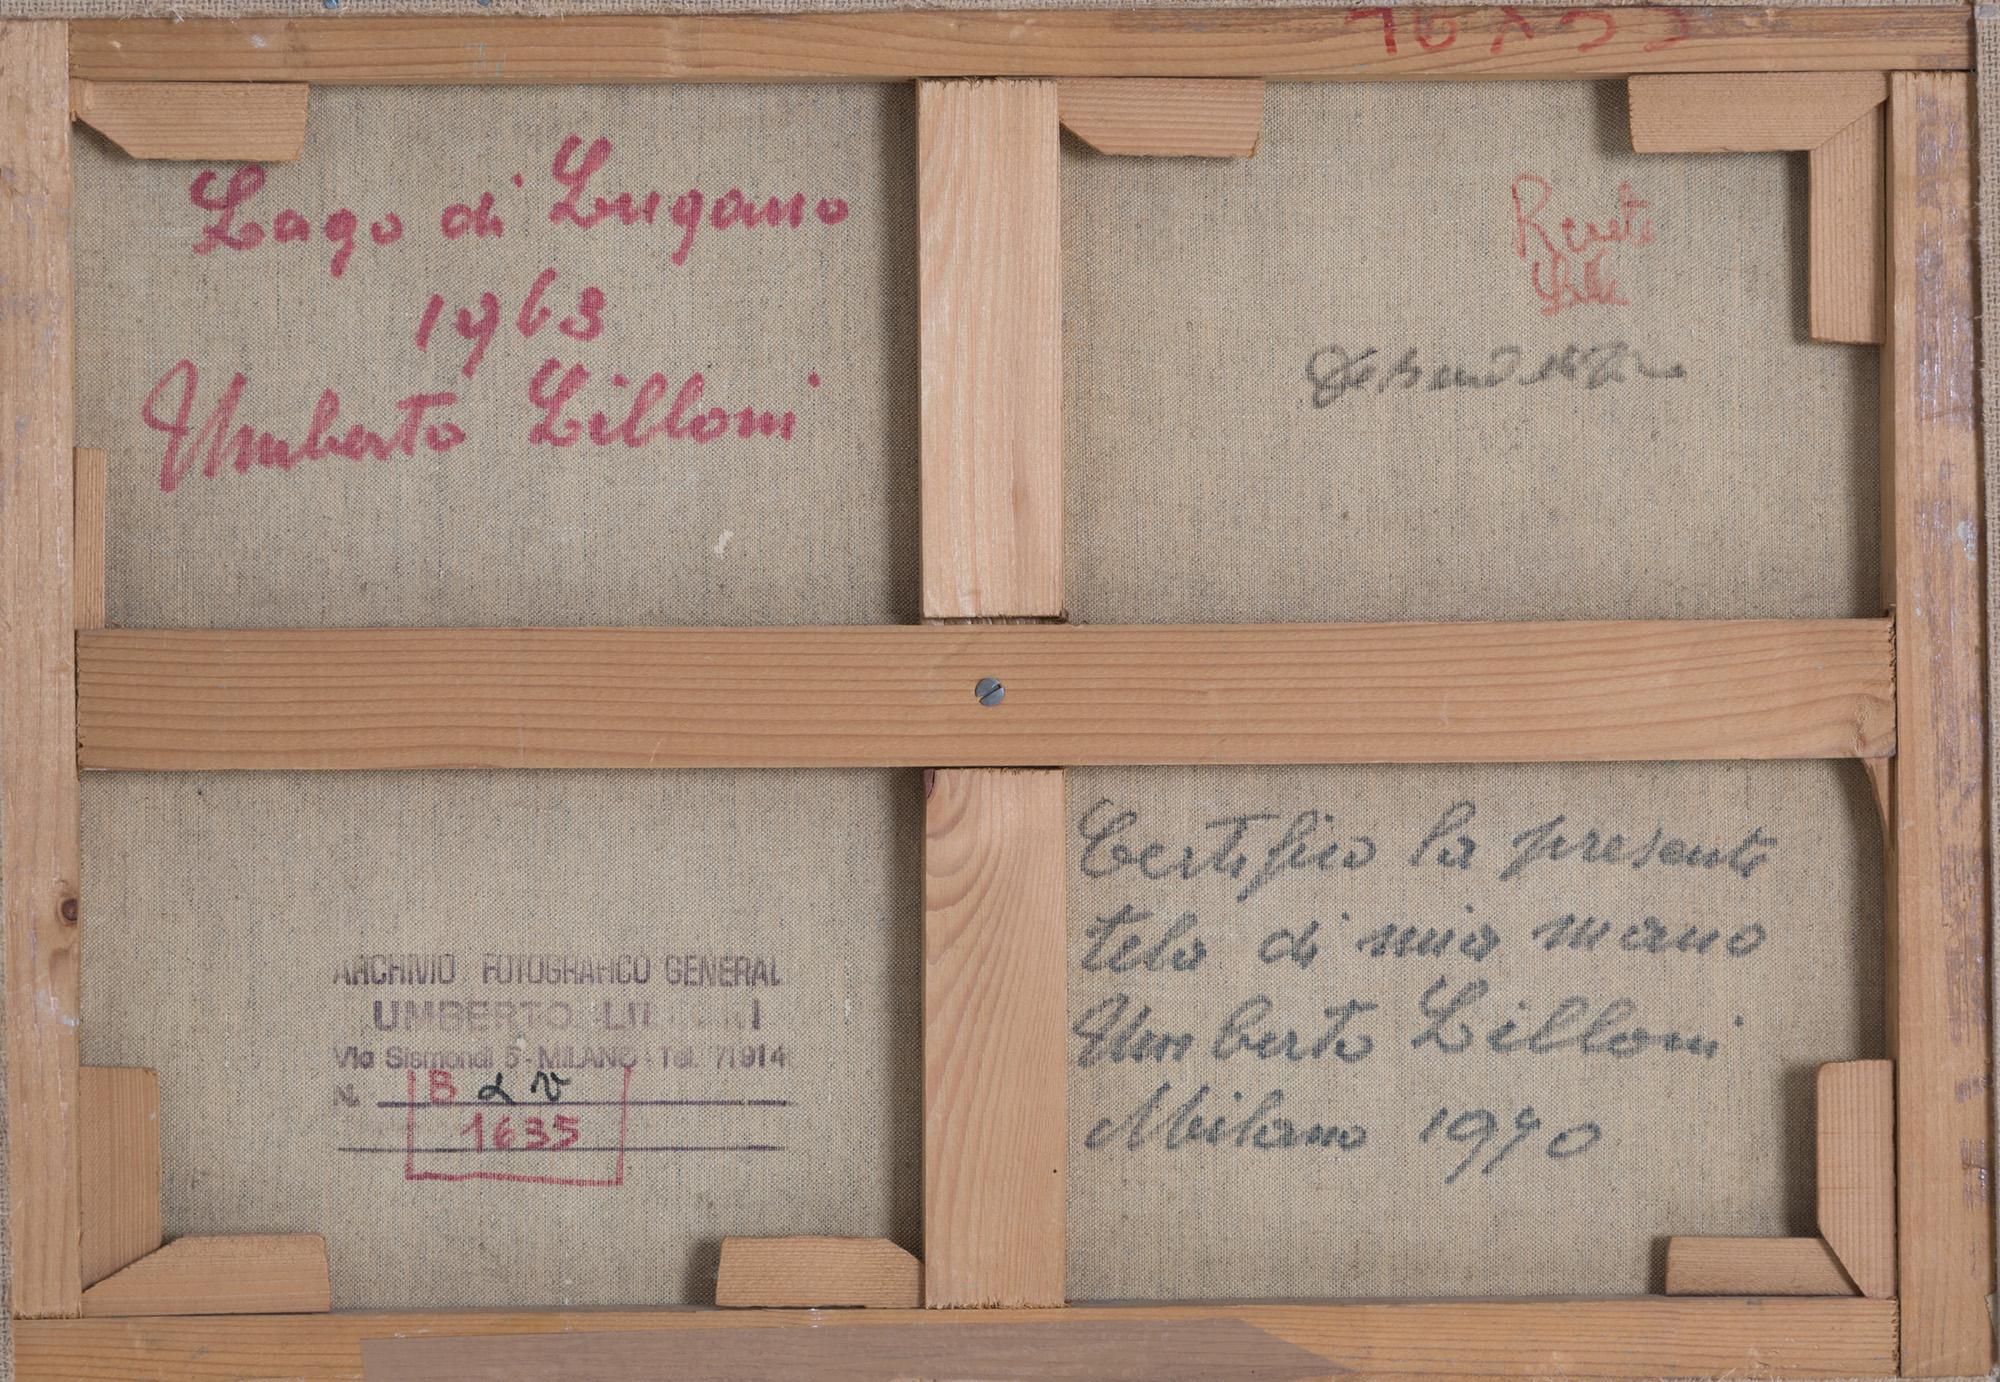 Lago di Lugano
1963
Umberto Lilloni
ARCHIVIO FOTOGRAFICO GENERAL
UMBERTO LIL I
Via Sismondi 5 - MILANO - Tel. 71914
N. B
1635
Certifico la presente
tela di mia mano
Umberto Lilloni
Milano 1970